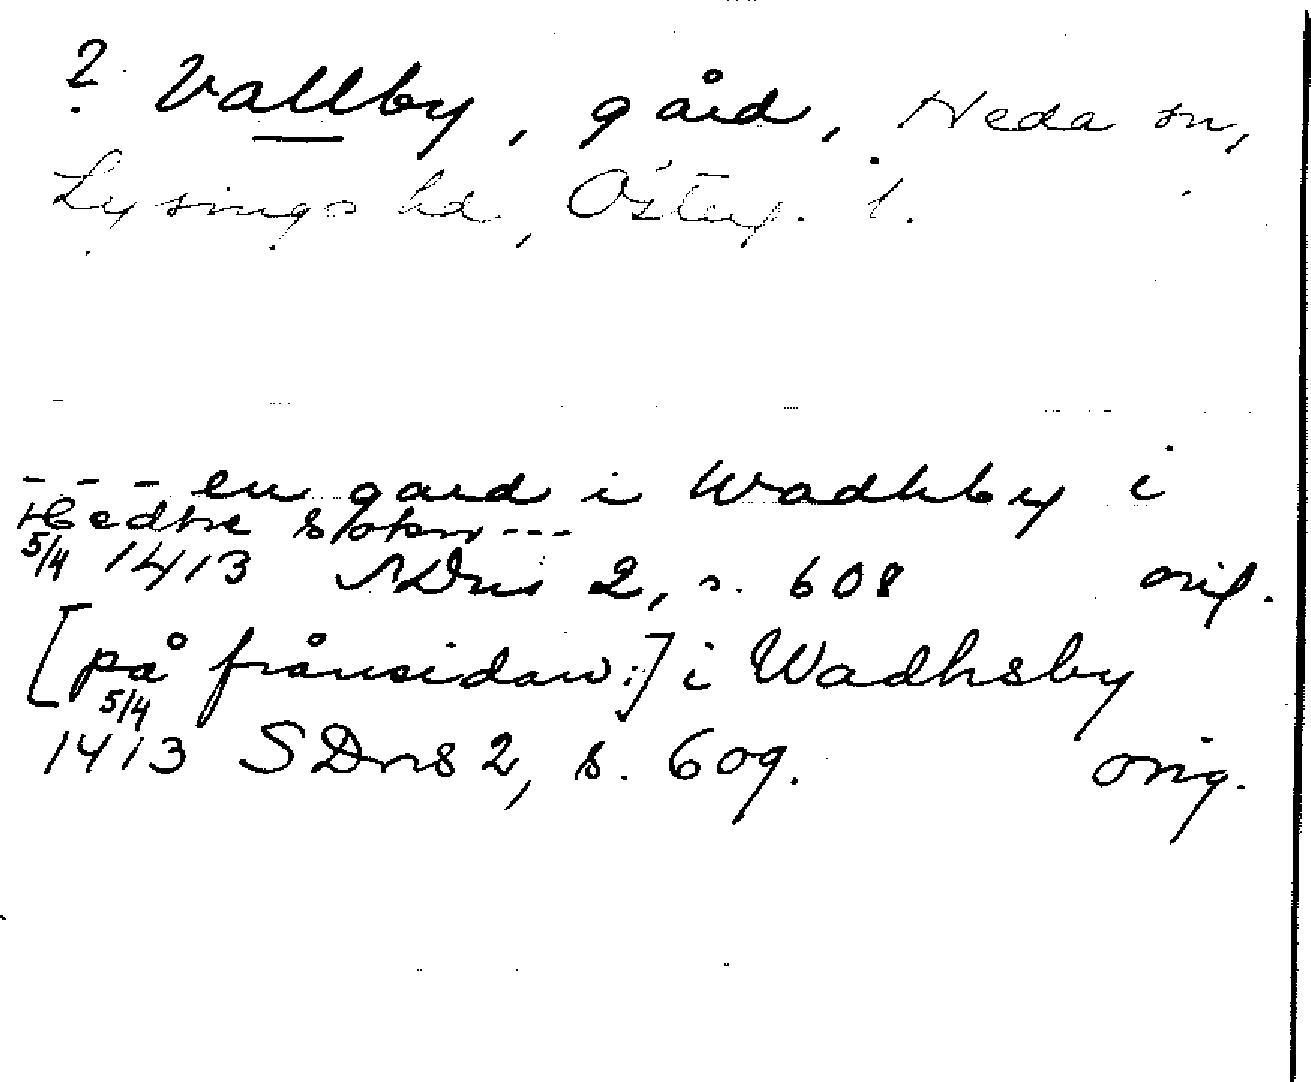 ? Vallby, gård, Heda sn,
Lysings hd, Österg. l.
- - - en gard i Wadhby i
Hedhe sokn ---
5/4 1413 SDns 2, s. 608 orig.
[på frånsidan:] i Wadhsby
5/4
1413 SDns 2, s. 609. orig.